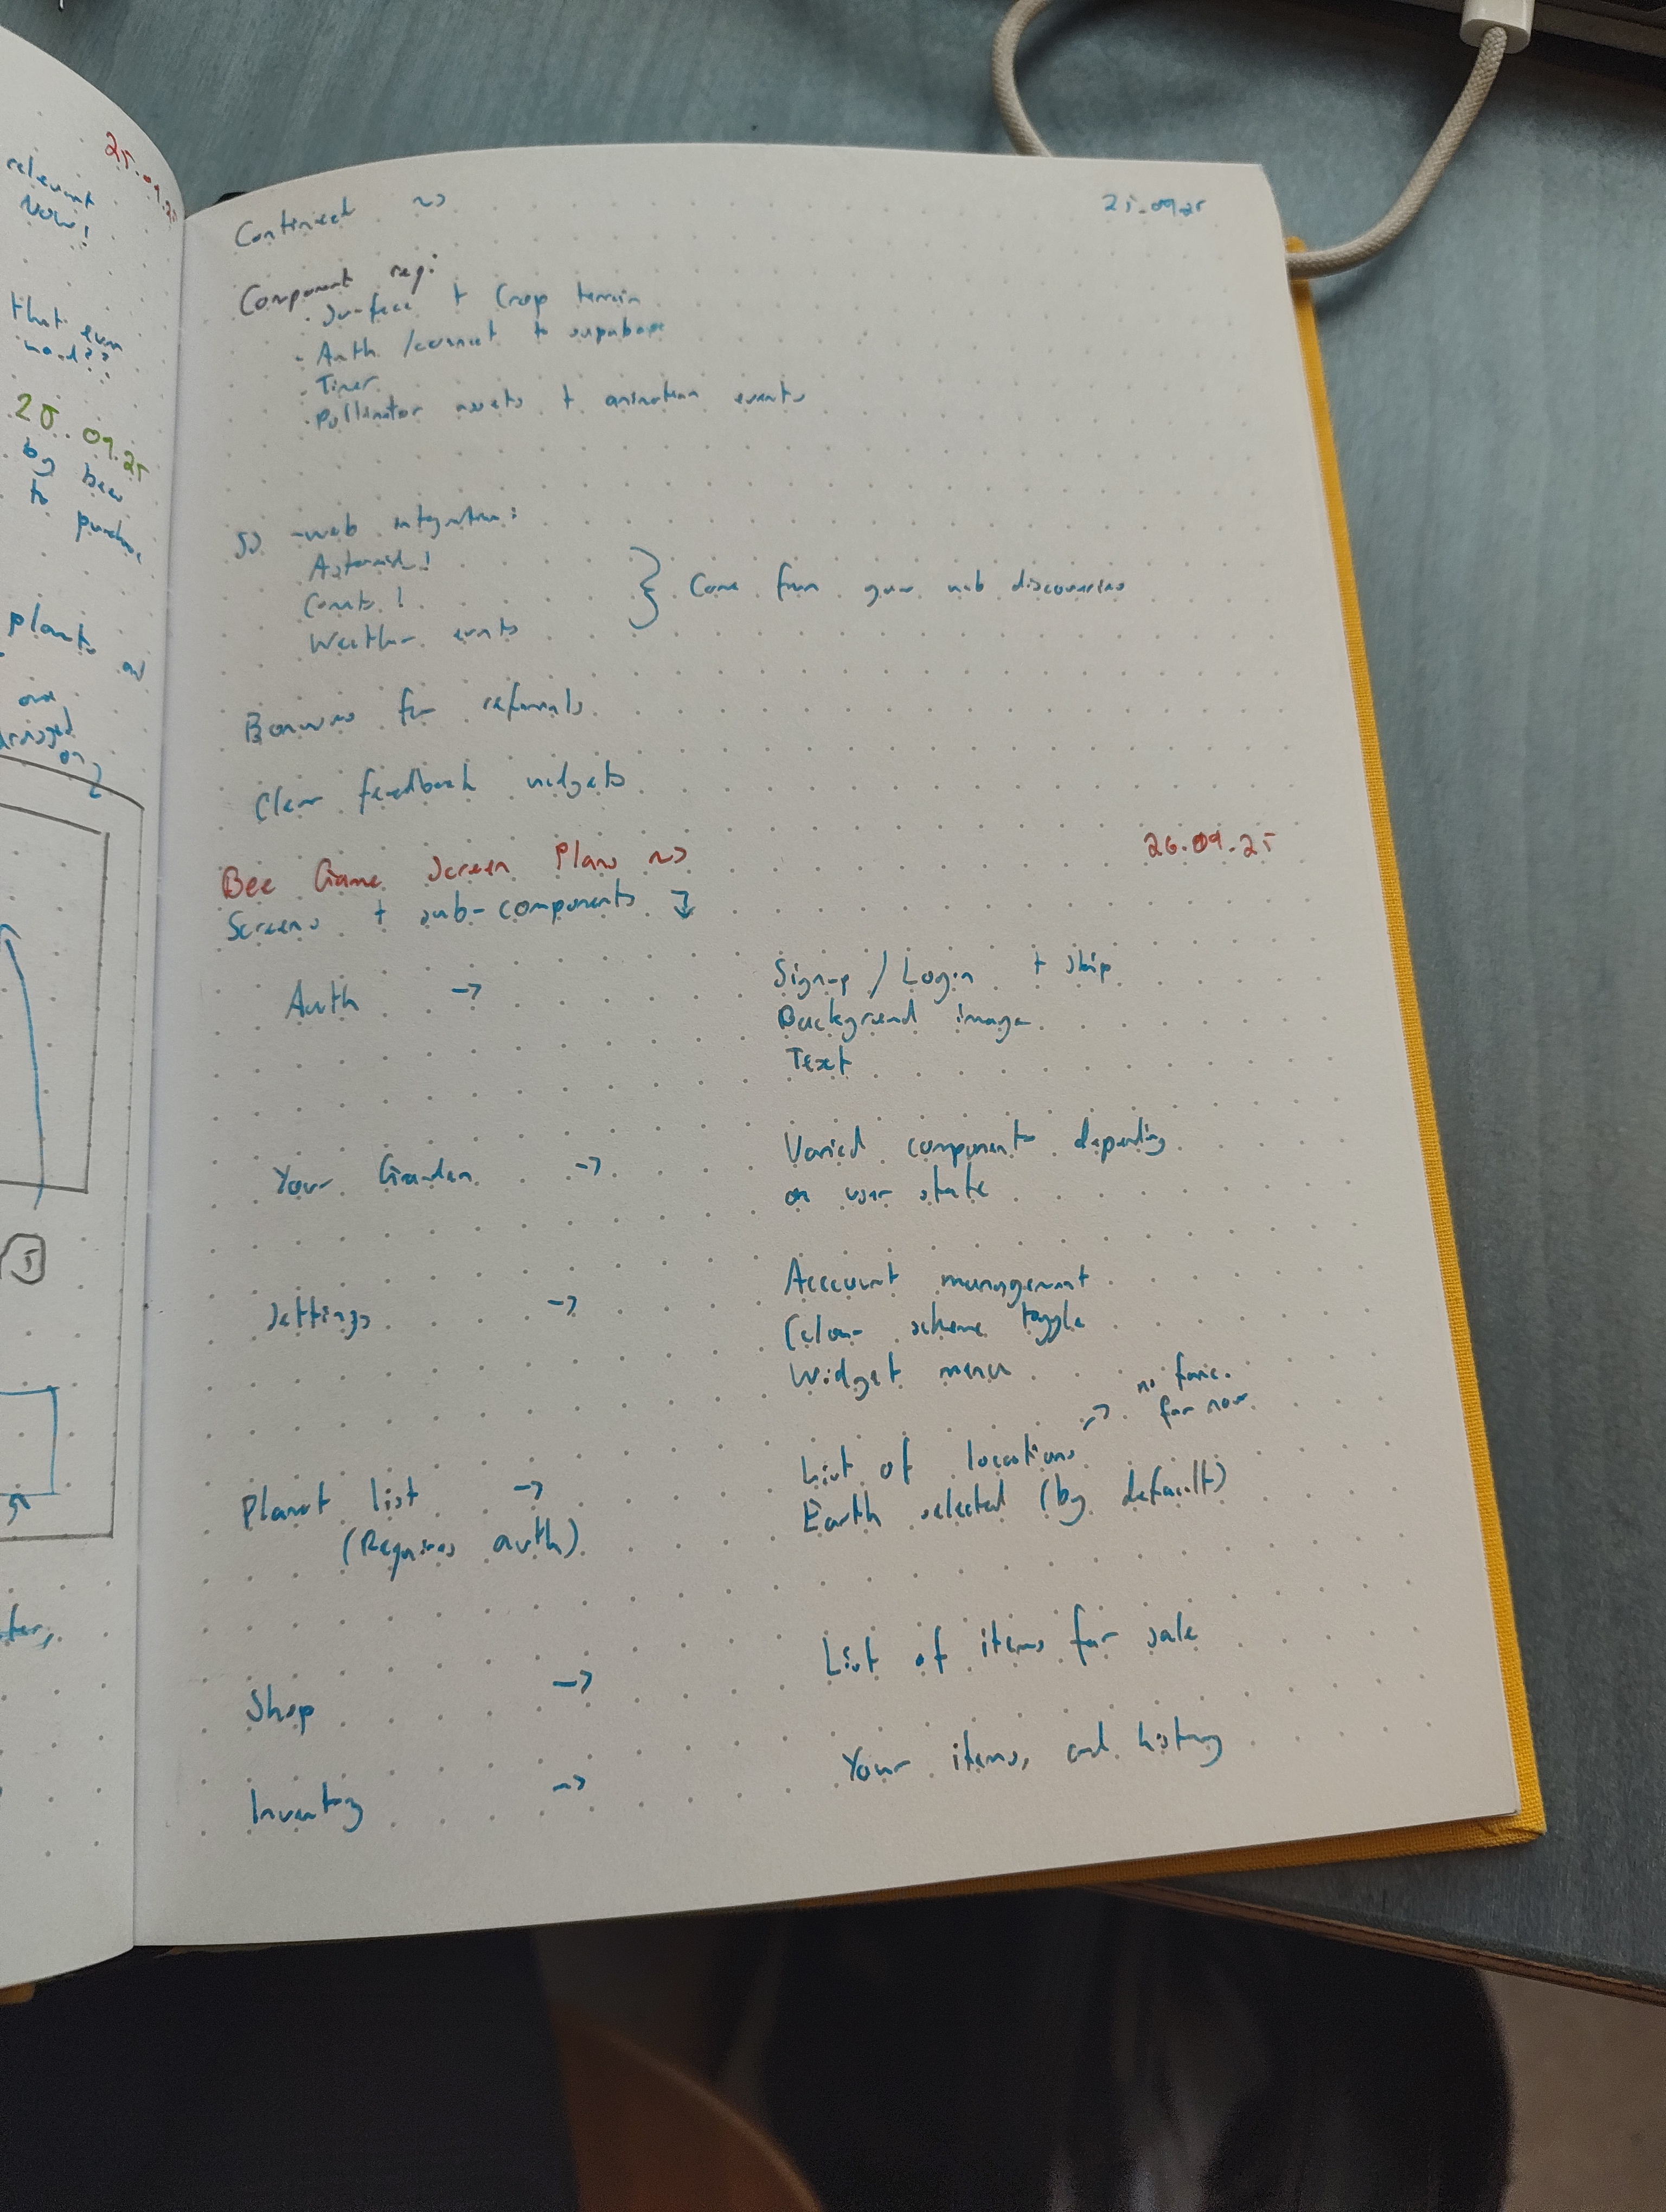 relevant
Now!
25.09.25
that even
25.09.25
by bees
to purchase
plants
and
on
5
Continued ~>
25.09.25
Component req:
· Surface + Crop terrain
· Auth /connect to supabase
· Timer
· Pollinator assets + animation events
-web integration:
Asteroid!
Comets!
Weather events
} Come from your web discoveries
Bonuses for referrals
Clear feedback widgets
Bee Game Screen Plans ~>
26.09.25
Screens + sub-components ↓
Auth ->
Signup / Login + skip
Background image
Text
Your Garden ->
Varied components depending
on user state
Settings ->
Account management
Colour scheme toggle
Widget menu
no func.
for now
Planet list ->
(Requires auth)
List of locations ->
Earth selected (by default)
Shop ->
List of items for sale
Inventory ->
Your items, and history